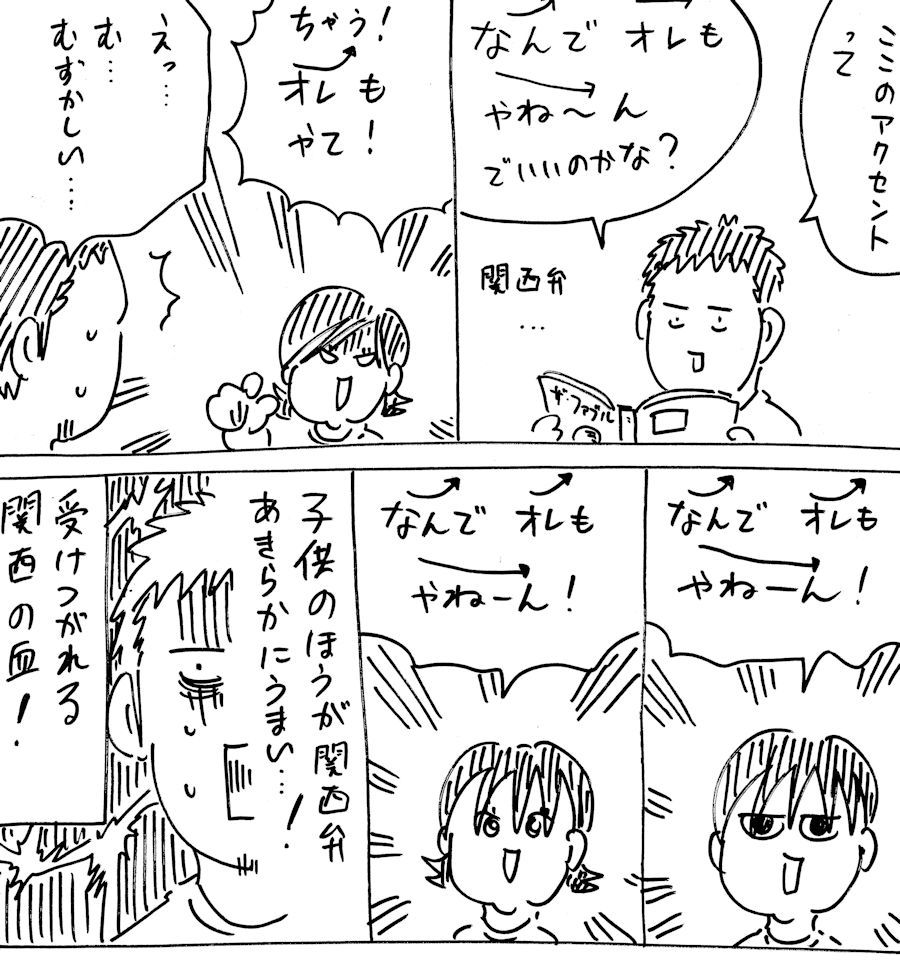 ここのアクセント
って
なんで オレも
やね〜ん
でいいのかな？
関西弁
…
ザ・ファブル
ちゃう！
オレも
やて！
えっ…
む…
むずかしい…
なんで オレも
やねーん！
なんで オレも
やねーん！
子供のほうが関西弁
あきらかにうまい…！
受けつがれる
関西の血！